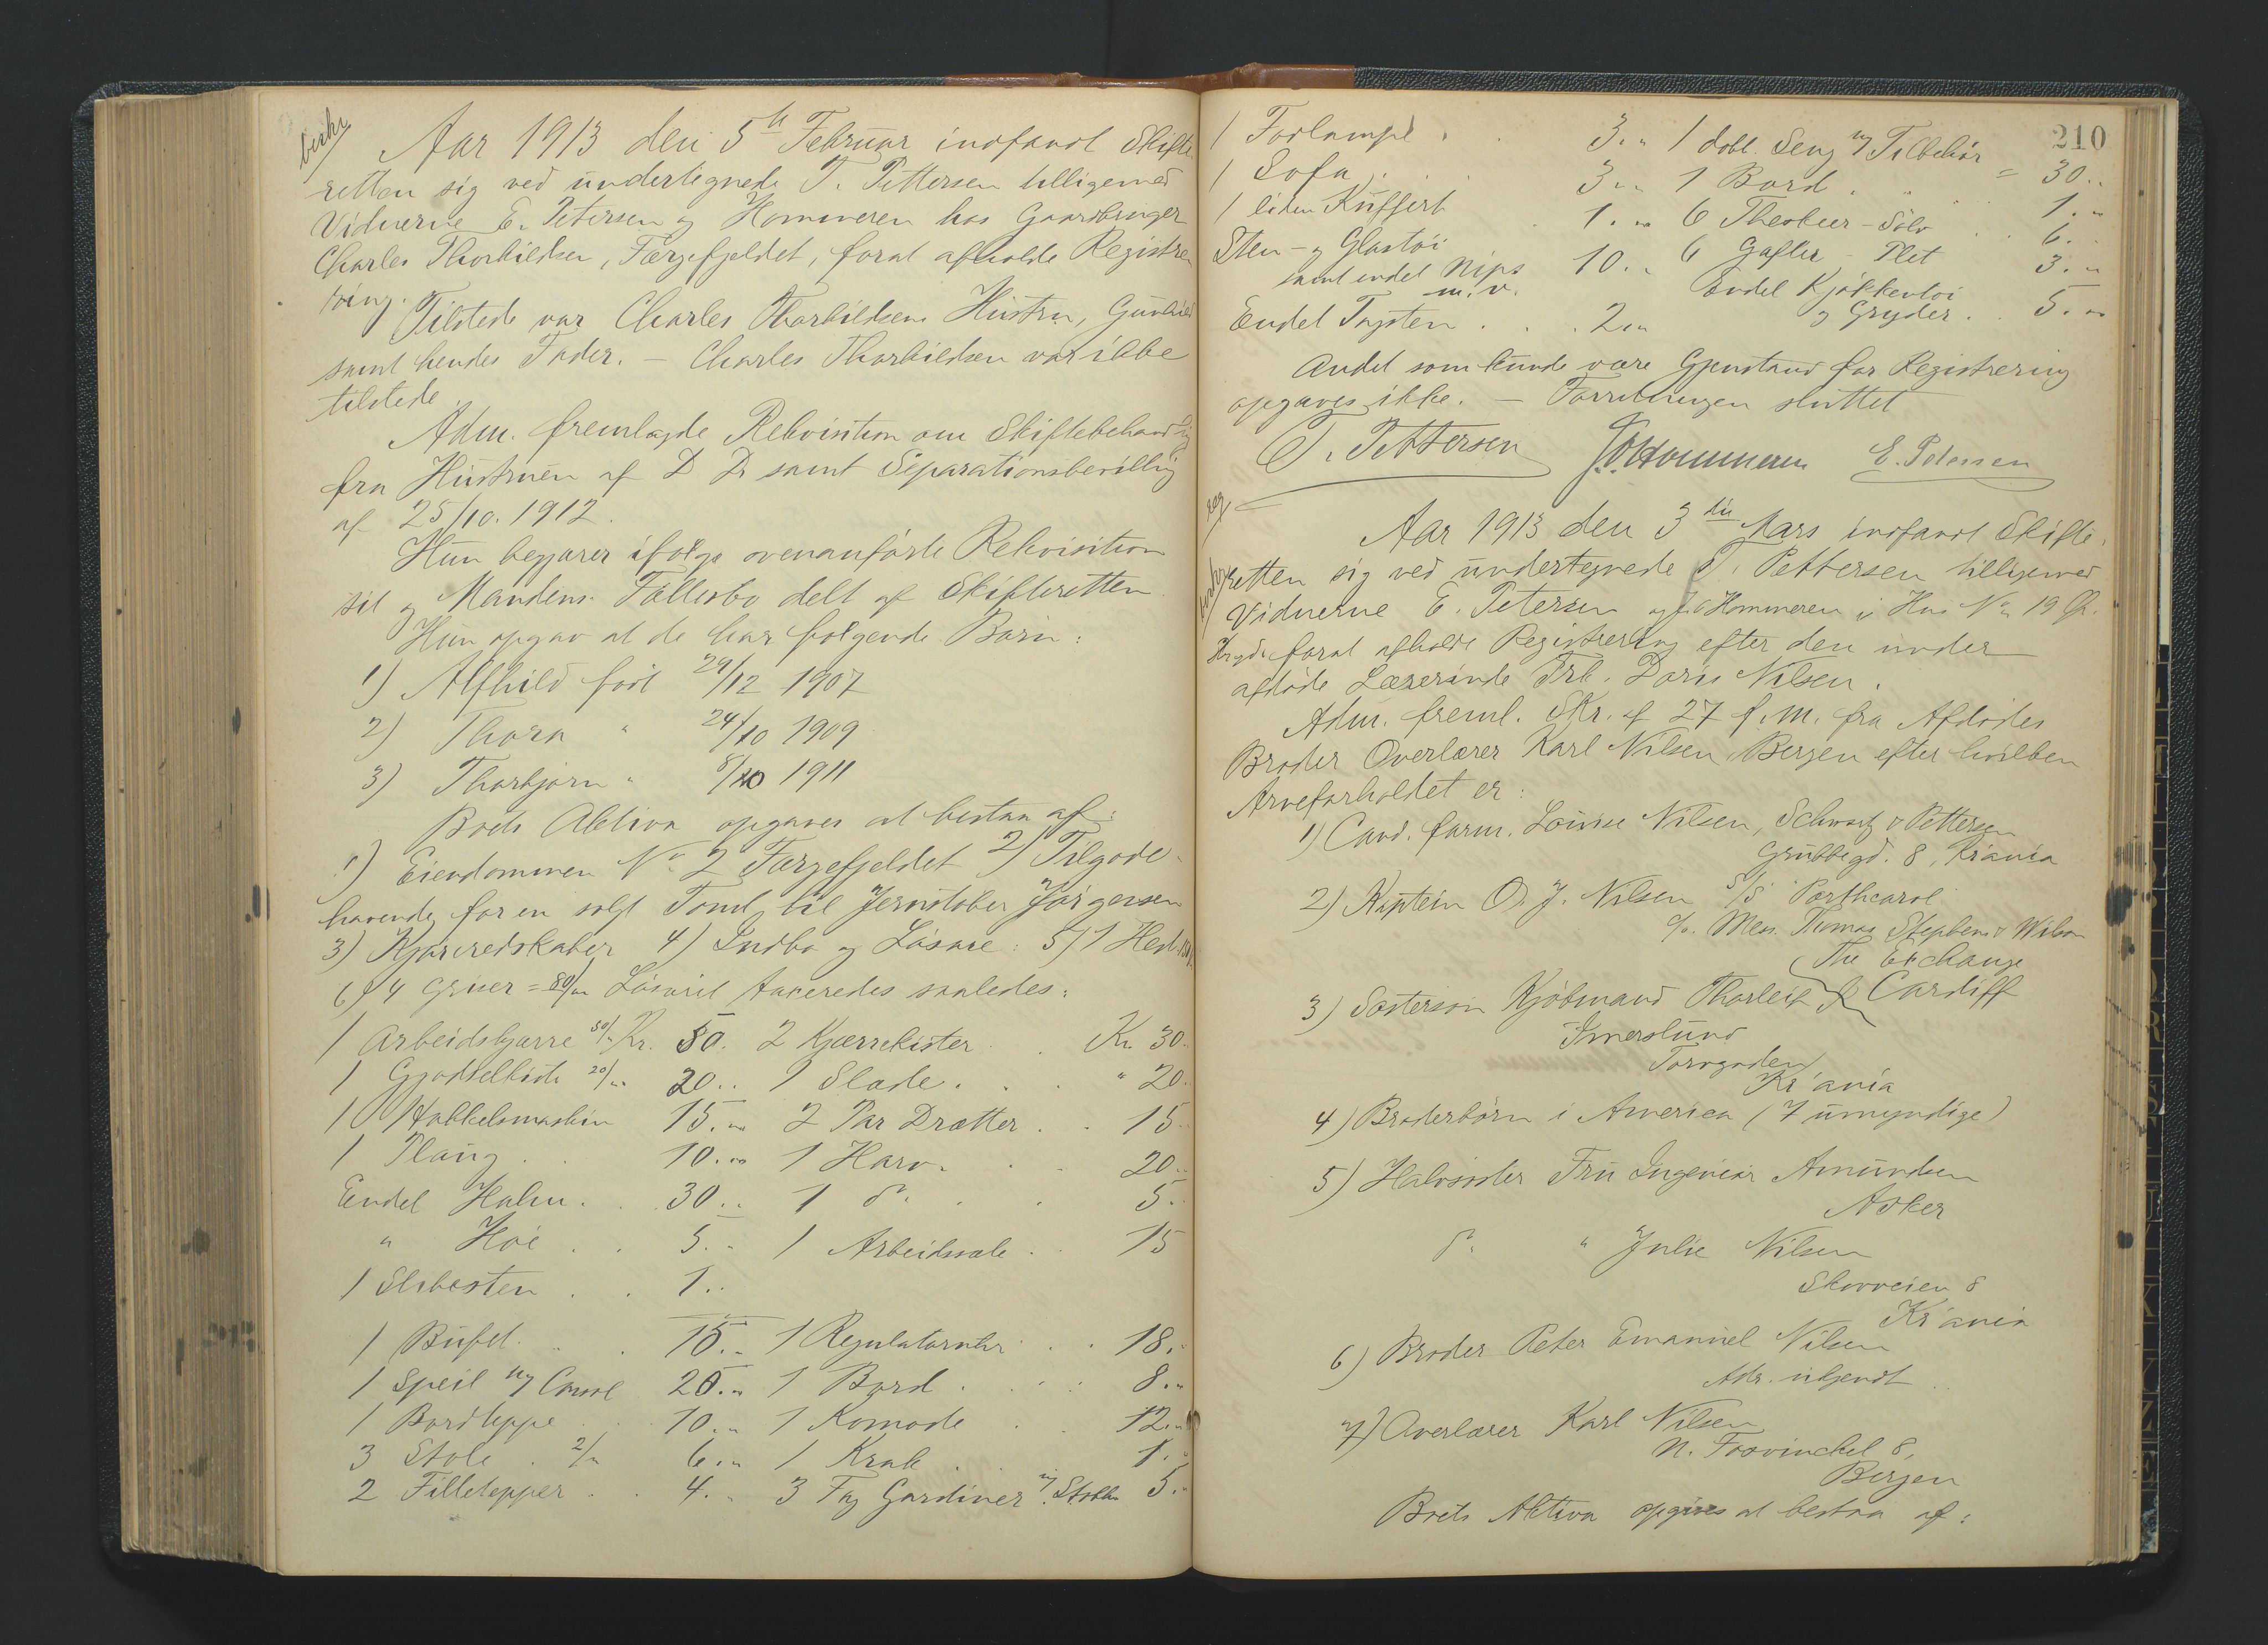 beskr
Aar 1913 den 5te Februar indfandt Skifte
retten sig ved undertegnede T. Pettersen tilligemed
Vidnerne E. Petersen og Hommeren hos Gaardbruger
Charles Thorkildsen, Færgefjeldet, forat afholde Registre
ring.
Tilstede var Charles Thorkildsens Hustru, Gunhild
samt hendes Fader. — Charles Thorkildsen var ikke
tilstede.
Adm. fremlagde Rekvisition om Skiftebehandlig
fra Hustruen af D D. samt Separationsbevillig
af 25/10. 1912.
Hun begjærer ifølge ovenanførte Rekvisition
sit og Mandens Fællesbo delt af Skifteretten.
Hun opgav at de har følgende Børn:
1) Alfhild født 29/12 1907
2) Thora " 24/10 1909
3) Thorbjørn " 8/10 1911
Boets Aktiva opgaves at bestaa af:
1) Eiendommen No 2 Færgefjeldet 2) Tilgode-
havende for en solgt Tomt til Jernstøber Jørgensen
3) Kjøreredskaber 4) Indbo og Løsøre: 5) 1 Hest
6) 4 Griser = 80/" Løsøret taxeredes saaledes:
1 Arbeidskjærre 50/" Kr. 50. 2 Kjærrekister . . Kr. 30.
1 Gjødselkiste 20/" 20.. 1 Slæde . . . " 20.
1 Hakkelsmaskin 15." 2 Par Drætter . . 15
1 Ploug . . 10." 1 Harv. . . 20.
Endel Halm . . 30.. 1 do . . 5.
" Høi . . 5.. 1 Arbeidssæle . . 15
1 Slibesten . . 1..
1 Bufet . . 15.. 1 Regulatoruhr . . 18.
1 Speil m/ Consol 20." 1 Bord . . . 8."
1 Bordteppe . . 10." 1 Komode . . 12."
3 Stole . 2/" 6." 1 Krak . . 1."
2 Filletepper . . 4. " 3 Fag Gardiner m/ Stokke 5."
210
1 Taklampe . . 3." 1 dobl. Seng m/ Tilbehør = 30..
1 Sofa . . . 3." 1 Bord . " " 1."
1 liden Kuffert . 1." 6 Theskeer - Sølv . . 6..
Sten- og Glastøi
samt endel Nips 10." 6 Gafler - Plet 3."
m. v. Endel Kjøkkentøi
Endel Tagsten . . . 2." og Gryder . . 5."
Andet som kunde være Gjenstand for Registrering
opgaves ikke. — Forretningen sluttet
T. Pettersen J. Hommeren E. Petersen
reg
Aar 1913 den 3die Mars indfandt Skifte-
retten sig ved undertegnede T. Pettersen tilligemed
Vidnerne E. Petersen og J. Hommeren i Hus No 19
forat afholde Registrering efter den under
afdøde Lærerinde Frk. Doris Nilsen.
Adm. freml. Skr. af 27 f. M. fra Afdødes
Broder Overlærer Karl Nilsen, Bergen efter hvilken
Arveforholdet er:
1) Cand. farm. Louise Nilsen, Schwartz & Pettersen
Grubbegd. 8, Kr´ania
2) Kaptein O. J. Nilsen S/S Porthcarol
c/o. Mess. Thomas Stephens & Wilson
The Exchange
Cardiff
3) Søstersøn Kjøbmand Thorleif
Imerslund
Torvgaden
Kr´ania
4) Broderbørn i America (7 umyndige)
5) Halvsøster Fru Ingeniør Amundsen
Asker
do " Julie Nilsen
Skovveien 8
Kr´ania
6) Broder Peter Emanuel Nilsen
Adr. ubjendt
7) Overlærer Karl Nilsen
N. Foswinckel 8,
Bergen
Boets Aktiva opgives at bestaa af: